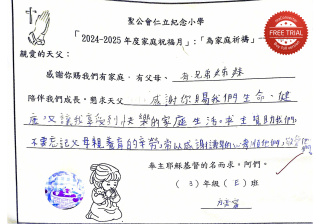 聖公會仁立紀念小學
「2024-2025年度家庭祝福月」:「為家庭祈禱」
FREE TRIAL
親愛的天父:
感謝你賜我們有家庭,有父母、有兄弟姊妹
陪伴我們成長,懇求天父 感謝你賜我們生命、健
康,又讓我享受到快樂的家庭生活。求主幫助我們,
不要忘記父母親養育的辛勞,常以感謝的心
奉主耶穌基督的名而求,阿們。
( 3 )年級( E )班